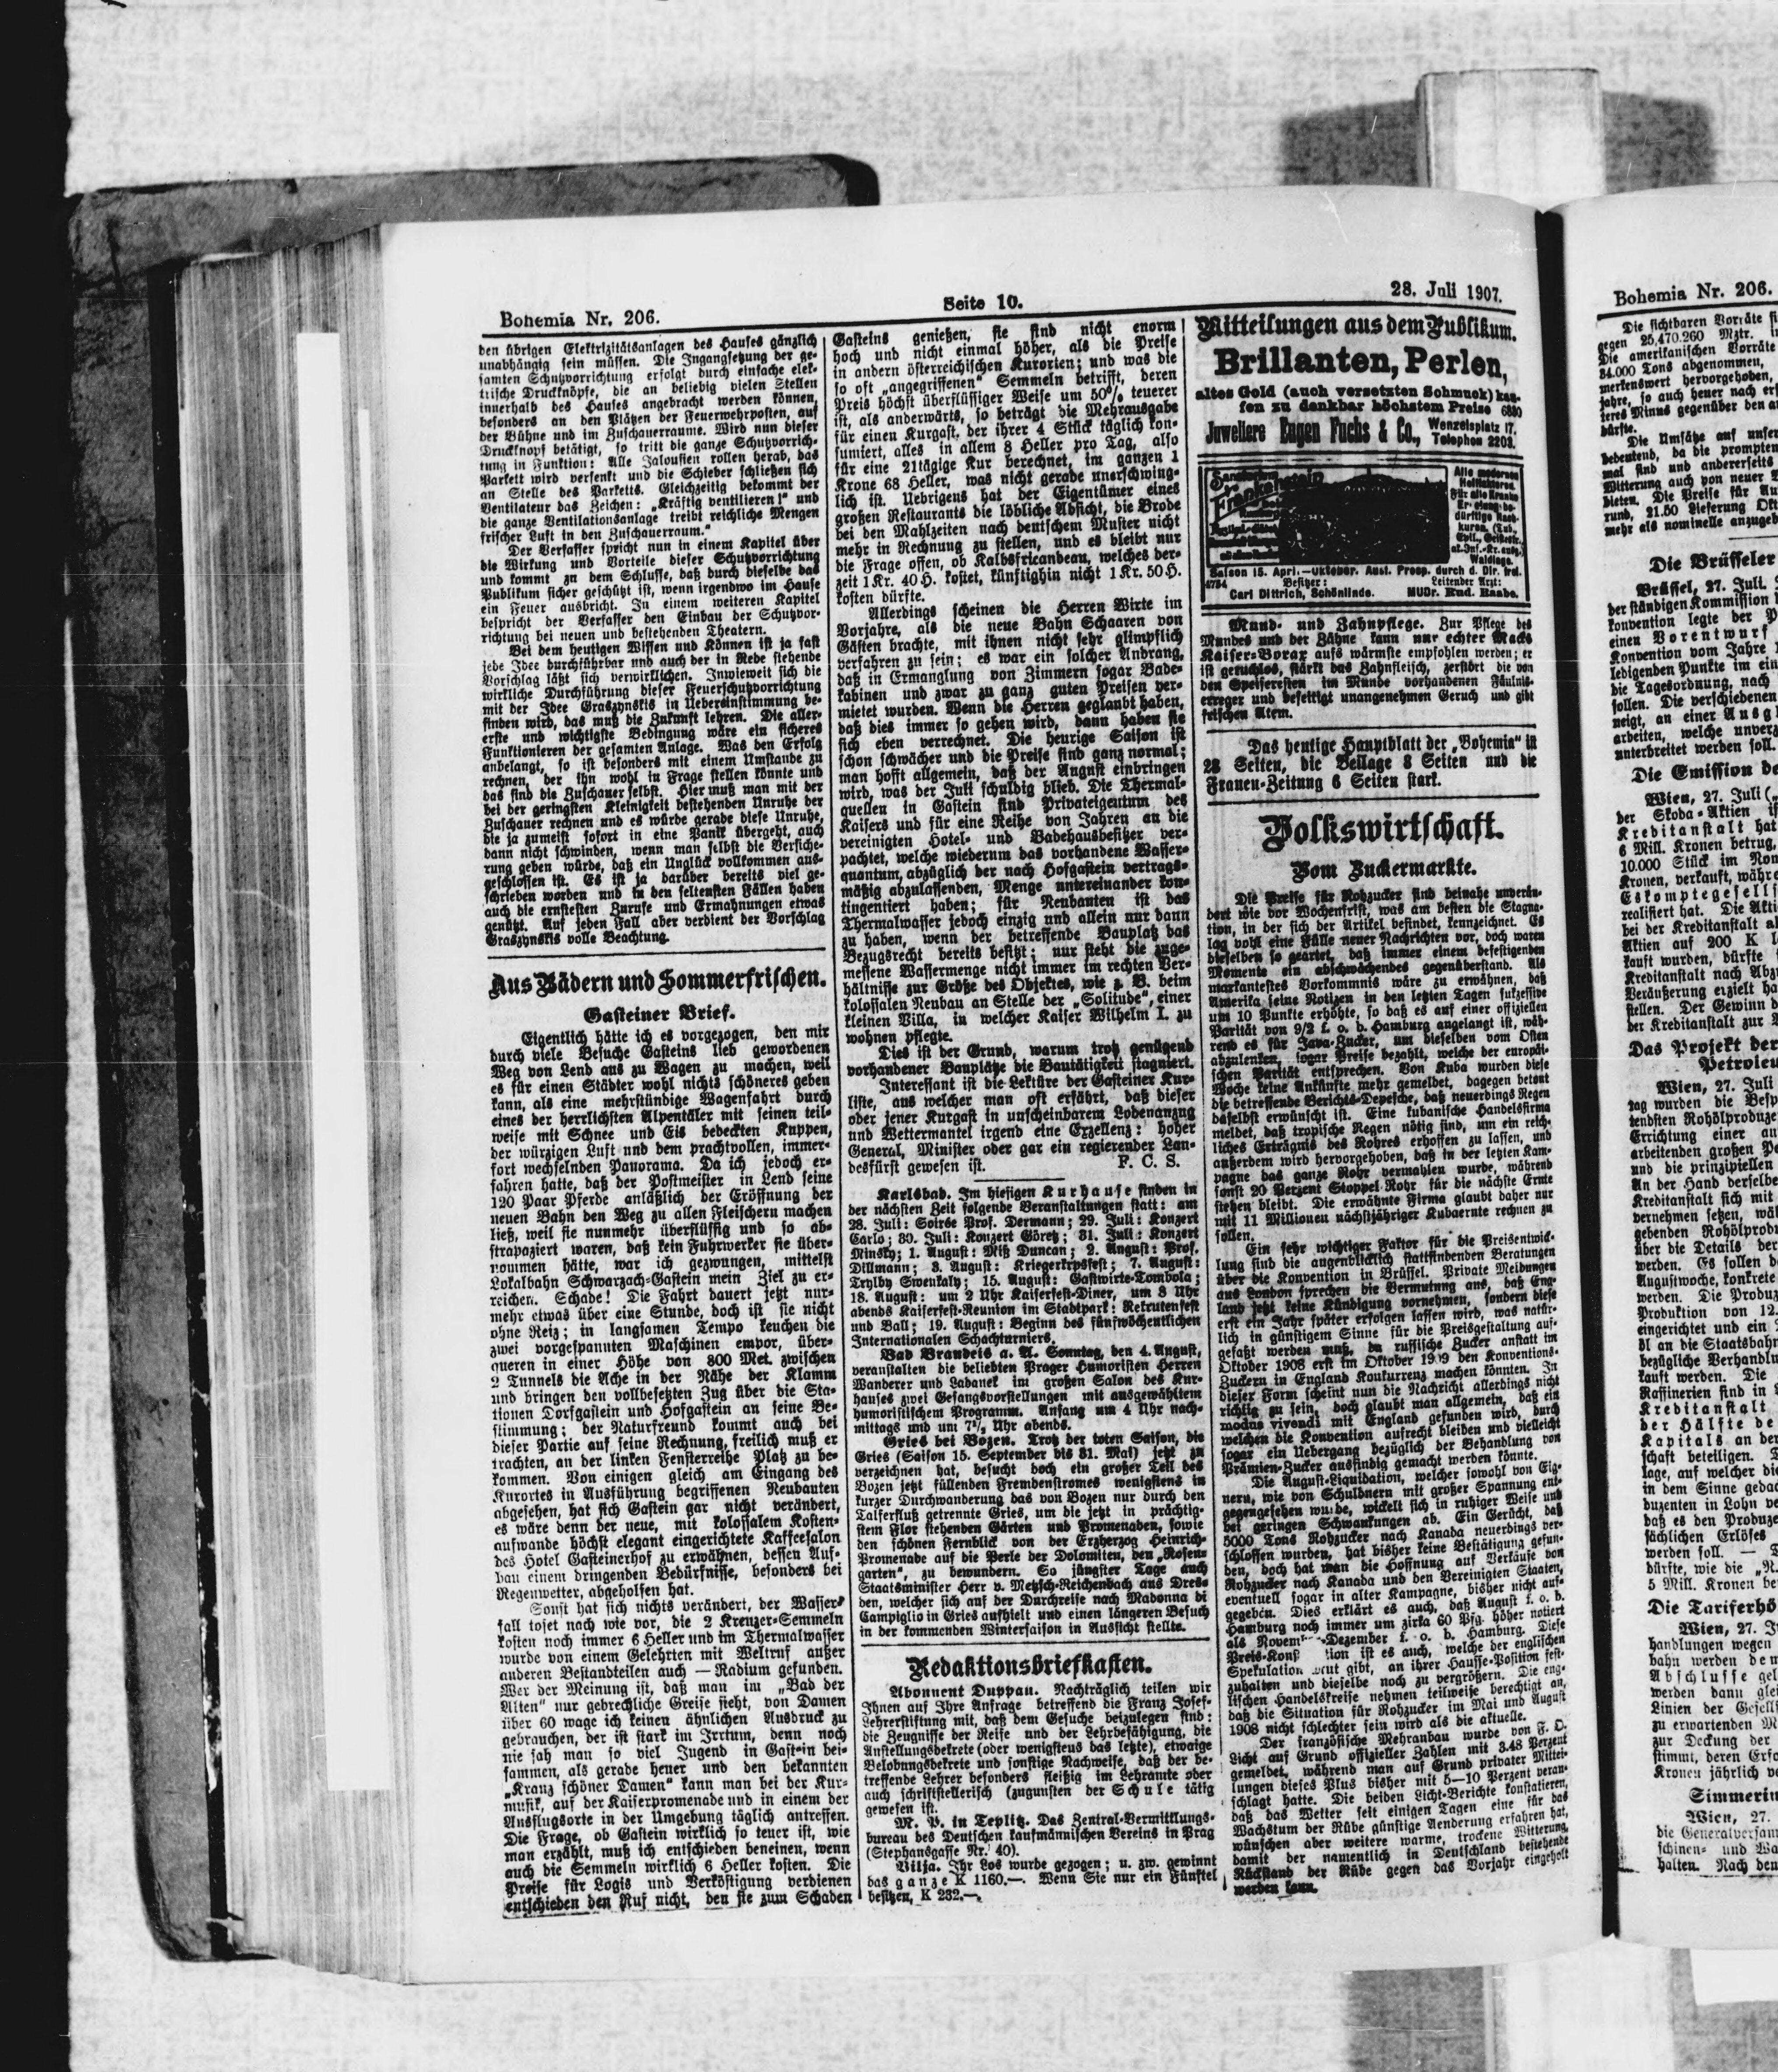 Bohemia Nr. 206.
Seite 10.
28. Juli 1907.
den übrigen Elektrizitätsanlagen des Hauses gänzlich
unabhängig sein müssen. Die Ingangsetzung der ge-
samten Schutzvorrichtung erfolgt durch einfache elek-
trische Druckknöpfe, die an beliebig vielen Stellen
innerhalb des Hauses angebracht werden können,
besonders an den Plätzen der Feuerwehrposten, auf
der Bühne und im Zuschauerraume. Wird nun dieser
Druckknopf betätigt, so tritt die ganze Schutzvorrich-
tung in Funktion: Alle Jalousien rollen herab, das
Parkett wird versenkt und die Schieber schließen sich
an Stelle des Parketts. Gleichzeitig bekommt der
Ventilateur das Zeichen: „Kräftig ventilieren!" und
die ganze Ventilationsanlage treibt reichliche Mengen
frischer Luft in den Zuschauerraum."
Der Verfasser spricht nun in einem Kapitel über
die Wirkung und Vorteile dieser Schutzvorrichtung
und kommt zu dem Schlusse, daß durch dieselbe das
Publikum sicher geschützt ist, wenn irgendwo im Hause
ein Feuer ausbricht. In einem weiteren Kapitel
bespricht der Verfasser den Einbau der Schutzvor-
richtung bei neuen und bestehenden Theatern.
Bei dem heutigen Wissen und Können ist ja fast
jede Idee durchführbar und auch der in Rede stehende
Vorschlag läßt sich verwirklichen. Inwieweit sich die
wirkliche Durchführung dieser Feuerschutzvorrichtung
mit der Idee Graszynskis in Uebereinstimmung be-
finden wird, das muß die Zukunft lehren. Die aller-
erste und wichtigste Bedingung wäre ein sicheres
Funktionieren der gesamten Anlage. Was den Erfolg
anbelangt, so ist besonders mit einem Umstande zu
rechnen, der ihn wohl in Frage stellen könnte und
das sind die Zuschauer selbst. Hier muß man mit der
bei der geringsten Kleinigkeit bestehenden Unruhe der
Zuschauer rechnen und es würde gerade diese Unruhe,
die ja zumeist sofort in eine Panik übergeht, auch
dann nicht schwinden, wenn man selbst die Versiche-
rung geben würde, daß ein Unglück vollkommen aus-
geschlossen ist. Es ist ja darüber bereits viel ge-
schrieben worden und in den seltensten Fällen haben
auch die ernstesten Zurufe und Ermahnungen etwas
genützt. Auf jeden Fall aber verdient der Vorschlag
Graszynskis volle Beachtung.
Aus Bädern und Sommerfrischen.
Gasteiner Brief.
Eigentlich hätte ich es vorgezogen, den mir
durch viele Besuche Gasteins lieb gewordenen
Weg von Lend aus zu Wagen zu machen, weil
es für einen Städter wohl nichts schöneres geben
kann, als eine mehrstündige Wagenfahrt durch
eines der herrlichsten Alpentäler mit seinen teil-
weise mit Schnee und Eis bedeckten Kuppen,
der würzigen Luft und dem prachtvollen, immer-
fort wechselnden Panorama. Da ich jedoch er-
fahren hatte, daß der Postmeister in Lend seine
120 Paar Pferde anläßlich der Eröffnung der
neuen Bahn den Weg zu allen Fleischern machen
ließ, weil sie nunmehr überflüssig und so ab-
strapaziert waren, daß kein Fuhrwerker sie über-
nommen hätte, war ich gezwungen, mittelst
Lokalbahn Schwarzach-Gastein mein Ziel zu er-
reichen. Schade! Die Fahrt dauert jetzt nur-
mehr etwas über eine Stunde, doch ist sie nicht
ohne Reiz; in langsamen Tempo keuchen die
zwei vorgespannten Maschinen empor, über-
queren in einer Höhe von 800 Met. zwischen
2 Tunnels die Ache in der Nähe der Klamm
und bringen den vollbesetzten Zug über die Sta-
tionen Dorfgastein und Hofgastein an seine Be-
stimmung; der Naturfreund kommt auch bei
dieser Partie auf seine Rechnung, freilich muß er
trachten, an der linken Fensterreihe Platz zu be-
kommen. Von einigen gleich am Eingang des
Kurortes in Ausführung begriffenen Neubauten
abgesehen, hat sich Gastein gar nicht verändert,
es wäre denn der neue, mit kolossalem Kosten-
aufwande höchst elegant eingerichtete Kaffeesalon
des Hotel Gasteinerhof zu erwähnen, dessen Auf-
bau einem dringenden Bedürfnisse, besonders bei
Regenwetter, abgeholfen hat.
Sonst hat sich nichts verändert, der Wasser-
fall toset nach wie vor, die 2 Kreuzer-Semmeln
kosten noch immer 6 Heller und im Thermalwasser
wurde von einem Gelehrten mit Weltruf außer
anderen Bestandteilen auch — Radium gefunden.
Wer der Meinung ist, daß man im „Bad der
Alten" nur gebrechliche Greise sieht, von Damen
über 60 wage ich keinen ähnlichen Ausdruck zu
gebrauchen, der ist stark im Irrtum, denn noch
nie sah man so viel Jugend in Gastein bei-
sammen, als gerade heuer und den bekannten
„Kranz schöner Damen" kann man bei der Kur-
musik, auf der Kaiserpromenade und in einem der
Ausflugsorte in der Umgebung täglich antreffen.
Die Frage, ob Gastein wirklich so teuer ist, wie
man erzählt, muß ich entschieden beneinen, wenn
auch die Semmeln wirklich 6 Heller kosten. Die
Preise für Logis und Verköstigung verdienen
entschieden den Ruf nicht, den sie zum Schaden
Gasteins genießen, sie sind nicht enorm
hoch und nicht einmal höher, als die Preise
in andern österreichischen Kurorten; und was die
so oft „angegriffenen" Semmeln betrifft, deren
Preis höchst überflüssiger Weise um 50% teuerer
ist, als anderwärts, so beträgt die Mehrausgabe
für einen Kurgast, der ihrer 4 Stück täglich kon-
sumiert, alles in allem 8 Heller pro Tag, also
für eine 21tägige Kur berechnet, im ganzen 1
Krone 68 Heller, was nicht gerade unerschwing-
lich ist. Uebrigens hat der Eigentümer eines
großen Restaurants die löbliche Absicht, die Brode
bei den Mahlzeiten nach deutschem Muster nicht
mehr in Rechnung zu stellen, und es bleibt nur
die Frage offen, ob Kalbsfricandeau, welches der-
zeit 1 Kr. 40 H. kostet, künftighin nicht 1 Kr. 50 H.
kosten dürfte.
Allerdings scheinen die Herren Wirte im
Vorjahre, als die neue Bahn Schaaren von
Gästen brachte, mit ihnen nicht sehr glimpflich
verfahren zu sein; es war ein solcher Andrang,
daß in Ermanglung von Zimmern sogar Bade-
kabinen und zwar zu ganz guten Preisen ver-
mietet wurden. Wenn die Herren geglaubt haben,
daß dies immer so gehen wird, dann haben sie
sich eben verrechnet. Die heurige Saison ist
schon schwächer und die Preise sind ganz normal;
man hofft allgemein, daß der August einbringen
wird, was der Juli schuldig blieb. Die Thermal-
quellen in Gastein sind Privateigentum des
Kaisers und für eine Reihe von Jahren an die
vereinigten Hotel- und Badehausbesitzer ver-
pachtet, welche wiederum das vorhandene Wasser-
quantum, abzüglich der nach Hofgastein vertrags-
mäßig abzulassenden, Menge untereinander kon-
tingentiert haben; für Neubauten ist das
Thermalwasser jedoch einzig und allein nur dann
zu haben, wenn der betreffende Bauplatz das
Bezugsrecht bereits besitzt; nur steht die zuge-
messene Wassermenge nicht immer im rechten Ver-
hältnisse zur Größe des Objektes, wie z. B. beim
kolossalen Neubau an Stelle der „Solitude", einer
kleinen Villa, in welcher Kaiser Wilhelm I. zu
wohnen pflegte.
Dies ist der Grund, warum trotz genügend
vorhandener Bauplätze die Bautätigkeit stagniert.
Interessant ist die Lektüre der Gasteiner Kur-
liste, aus welcher man oft erfährt, daß dieser
oder jener Kurgast in unscheinbarem Lodenanzug
und Wettermantel irgend eine Exzellenz: hoher
General, Minister oder gar ein regierender Lan-
desfürst gewesen ist. F. C. S.
Karlsbad. Im hiesigen Kurhause finden in
der nächsten Zeit folgende Veranstaltungen statt: am
28. Juli: Soirée Prof. Dermann; 29. Juli: Konzert
Carlo; 30. Juli: Konzert Göretz; 31. Juli: Konzert
Minsky; 1. August: Miß Duncan; 2. August: Prof.
Dillmann; 3. August: Kriegerkrpsfest; 7. August:
Trylby Swenkaly; 15. August: Gastwirte-Tombola;
18. August: um 2 Uhr Kaiserfest-Diner, um 8 Uhr
abends Kaiserfest-Reunion im Stadtpark: Rekrutenfest
und Ball; 19. August: Beginn des fünfwöchentlichen
Internationalen Schachturniers.
Bad Brandeis a. A. Sonntag, den 4. August,
veranstalten die beliebten Prager Humoristen Herren
Wanderer und Labanek im großen Salon des Kur-
hauses zwei Gesangsvorstellungen mit ausgewähltem
humoristischem Programm. Anfang um 4 Uhr nach-
mittags und um 7½ Uhr abends.
Gries bei Bozen. Trotz der toten Saison, die
Gries (Saison 15. September bis 31. Mai) jetzt zu
verzeichnen hat, besucht doch ein großer Teil des
Bozen jetzt füllenden Fremdenstromes wenigstens in
kurzer Durchwanderung das von Bozen nur durch den
Talferfluß getrennte Gries, um die jetzt in prächtig-
stem Flor stehenden Gärten und Promenaden, sowie
den schönen Fernblick von der Erzherzog Heinrich-
Promenade auf die Perle der Dolomiten, den „Rosen-
garten", zu bewundern. So jüngster Tage auch
Staatsminister Herr v. Metzsch-Reichenbach aus Dres-
den, welcher sich auf der Durchreise nach Madonna di
Campiglio in Gries aufhielt und einen längeren Besuch
in der kommenden Wintersaison in Aussicht stellte.
Redaktionsbriefkasten.
Abonnent Duppau. Nachträglich teilen wir
Ihnen auf Ihre Anfrage betreffend die Franz Josef-
Lehrerstiftung mit, daß dem Gesuche beizulegen sind:
die Zeugnisse der Reife und der Lehrbefähigung, die
Anstellungsdekrete (oder wenigstens das letzte), etwaige
Belobungsdekrete und sonstige Nachweise, daß der be-
treffende Lehrer besonders fleißig im Lehramte oder
auch schriftstellerisch (zugunsten der Schule tätig
gewesen ist.
M. P. in Teplitz. Das Zentral-Vermittlungs-
bureau des Deutschen kaufmännischen Vereins in Prag
(Stephansgasse Nr. 40).
Vilja. Ihr Los wurde gezogen; u. zw. gewinnt
das ganze K 1160.—. Wenn Sie nur ein Fünftel
besitzen, K 232.—.
Mitteilungen aus dem Publikum.
Brillanten, Perlen,
altes Gold (auch versetzten Schmuck) kau-
fen zu denkbar höchstem Preise 6880
Juweliere Eugen Fuchs & Co., Wenzelsplatz 17.
Telephon 2203.
Sanatorium
Frankenstein
Alle modernen
Heilfaktoren
Für alle Kranke
Er olung be-
dürftige Nach-
kuren. (Tub.,
Epil., Geisteskr.,
at. Inf.-Kr. ausg.)
Waldlage.
Saison 15. April—Oktober. Ausf. Prosp. durch d. Dir. frei.
4734 Besitzer: Leitender Arzt:
Carl Dittrich, Schönlinde. MUDr. Rud. Raabe.
Mund- und Zahnpflege. Zur Pflege des
Mundes und der Zähne kann nur echter Macks
Kaiser-Borax aufs wärmste empfohlen werden; er
ist geruchlos, stärkt das Zahnfleisch, zerstört die von
den Speiseresten im Munde vorhandenen Fäulnis-
erreger und beseitigt unangenehmen Geruch und gibt
frischen Atem.
Das heutige Hauptblatt der „Bohemia" ist
28 Seiten, die Beilage 8 Seiten und die
Frauen-Zeitung 6 Seiten stark.
Volkswirtschaft.
Vom Zuckermarkte.
Die Preise für Rohzucker sind beinahe unverän-
dert wie vor Wochenfrist, was am besten die Stagna-
tion, in der sich der Artikel befindet, kennzeichnet. Es
lag wohl eine Fülle neuer Nachrichten vor, doch waren
dieselben so geartet, daß immer einem befestigenden
Momente ein abschwächendes gegenüberstand. Als
markantestes Vorkommnis wäre zu erwähnen, daß
Amerika seine Notizen in den letzten Tagen sukzessive
um 10 Punkte erhöhte, so daß es auf einer offiziellen
Parität von 9/2 f. o. b. Hamburg angelangt ist, wäh-
rend es für Java-Zucker, um dieselben vom Osten
abzulenken, sogar Preise bezahlt, welche der europäi-
schen Parität entsprechen. Von Kuba wurden diese
Woche keine Ankünfte mehr gemeldet, dagegen betont
die betreffende Berichts-Depesche, daß neuerdings Regen
daselbst erwünscht ist. Eine kubanische Handelsfirma
meldet, daß tropische Regen nötig sind, um ein reich-
liches Erträgnis des Rohres erhoffen zu lassen, und
außerdem wird hervorgehoben, daß in der letzten Kam-
pagne das ganze Rohr vermahlen wurde, während
sonst 20 Perzent Stoppel-Rohr für die nächste Ernte
stehen bleibt. Die erwähnte Firma glaubt daher nur
mit 11 Millionen nächstjähriger Kubaernte rechnen zu
sollen.
Ein sehr wichtiger Faktor für die Preisentwick-
lung sind die augenblicklich stattfindenden Beratungen
über die Konvention in Brüssel. Private Meldungen
aus London sprechen die Vermutung aus, daß Eng-
land jetzt keine Kündigung vornehmen, sondern diese
erst ein Jahr später erfolgen lassen wird, was natür-
lich in günstigem Sinne für die Preisgestaltung auf-
gefaßt werden muß, da russische Zucker anstatt im
Oktober 1908 erst im Oktober 1909 den Konventions-
Zuckern in England Konkurrenz machen könnten. In
dieser Form scheint nun die Nachricht allerdings nicht
richtig zu sein, doch glaubt man allgemein, daß ein
modus vivendi mit England gefunden wird, durch
welchen die Konvention aufrecht bleiben und vielleicht
sogar ein Uebergang bezüglich der Behandlung von
Prämien-Zucker ausfindig gemacht werden könnte.
Die August-Liquidation, welcher sowohl von Eig-
nern, wie von Schuldnern mit großer Spannung ent-
gegengesehen wurde, wickelt sich in ruhiger Weise und
bei geringen Schwankungen ab. Ein Gerücht, daß
5000 Tons Rohzucker nach Kanada neuerdings ver-
schlossen wurden, hat bisher keine Bestätigung gefun-
den, doch hat man die Hoffnung auf Verkäufe von
Rohzucker nach Kanada und den Vereinigten Staaten,
eventuell sogar in alter Kampagne, bisher nicht auf-
gegeben. Dies erklärt es auch, daß August f. o. b.
Hamburg noch immer um zirka 60 Pfg. höher notiert
als Novem -Dezember f. o. b. Hamburg. Diese
Preis-Kons tion ist es auch, welche der englischen
Spekulation Mut gibt, an ihrer Hausse-Position fest-
zuhalten und dieselbe noch zu vergrößern. Die eng-
lischen Handelskreise nehmen teilweise berechtigt an,
daß die Situation für Rohzucker im Mai und August
1908 nicht schlechter sein wird als die aktuelle.
Der französische Mehranbau wurde von F. O.
Licht auf Grund offizieller Zahlen mit 3.48 Perzent
gemeldet, während man auf Grund privater Mittei-
lungen dieses Plus bisher mit 5—10 Perzent veran-
schlagt hatte. Die beiden Licht-Berichte konstatieren,
daß das Wetter seit einigen Tagen eine für das
Wachstum der Rübe günstige Aenderung erfahren hat,
wünschen aber weitere warme, trockene Witterung,
damit der namentlich in Deutschland bestehende
Rückstand der Rübe gegen das Vorjahr eingeholt
werden kann.
Bohemia Nr. 206.
Die sichtbaren Vorräte
gegen 25,470.260 Mztr.
Die amerikanischen Vorräte
84.000 Tons abgenommen,
merkenswert hervorgehoben,
jahre, so auch heuer nach
teres Minus gegenüber den
dürfte.
Die Umsätze auf unser
bedeutend, da die prompten
mal sind und andererseits
Witterung auch von neuer
bieten. Die Preise für Au
rund, 21.50 Lieferung Okt
mehr als nominelle anzugeb
Die Brüsseler
Brüssel, 27. Juli.
der ständigen Kommission
konvention legte der P
einen Vorentwurf
Konvention vom Jahre
ledigenden Punkte im ein
die Tagesordnung, nach
sollen. Die verschiedenen
neigt, an einer Ausgl
arbeiten, welche unverz
unterbreitet werden soll.
Die Emission de
Wien, 27. Juli („
der Skoda-Aktien
Kreditanstalt hat
6 Mill. Kronen betrug,
10.000 Stück im Nom
Kronen, verkauft, währe
Eskomptegesells
realisiert hat. Die Akti
bei der Kreditanstalt al
Aktien auf 200 K
kauft wurden, dürfte
Kreditanstalt nach Abz
Veräußerung erzielt ha
stellen. Der Gewinn
der Kreditanstalt zur
Das Projekt der
Petroleu
Wien, 27. Juli
tag wurden die Besp
tendsten Rohölproduze
Errichtung einer au
arbeitenden großen Pe
und die prinzipiellen
An der Hand derselbe
Kreditanstalt sich mit
vernehmen setzen, wä
gebenden Rohölprodu
über die Details der
werden. Es sollen
Augustwoche, konkrete
werden. Die Produz
Produktion von 12.
eingerichtet und ein
öl an die Staatsbahn
bezügliche Verhandlu
kauft werden. Die
Raffinerien sind in
Kreditanstalt
der Hälfte de
Kapitals an der
schaft beteiligen.
lage, auf welcher die
in dem Sinne gedac
duzenten in Lohn ve
daß es den Produze
sächlichen Erlöses
werden soll. —
dürfte, wie die „N.
5 Mill. Kronen be
Die Tariferhö
Wien, 27. J
handlungen wegen
bahn werden dem
Abschlusse gel
werden dann glei
Linien der Gesells
zu erwartenden M
zur Deckung der
stimmt, deren Erfo
Kronen jährlich ve
Simmerin
Wien, 27.
die Generalversam
schinen- und Wa
halten. Nach den